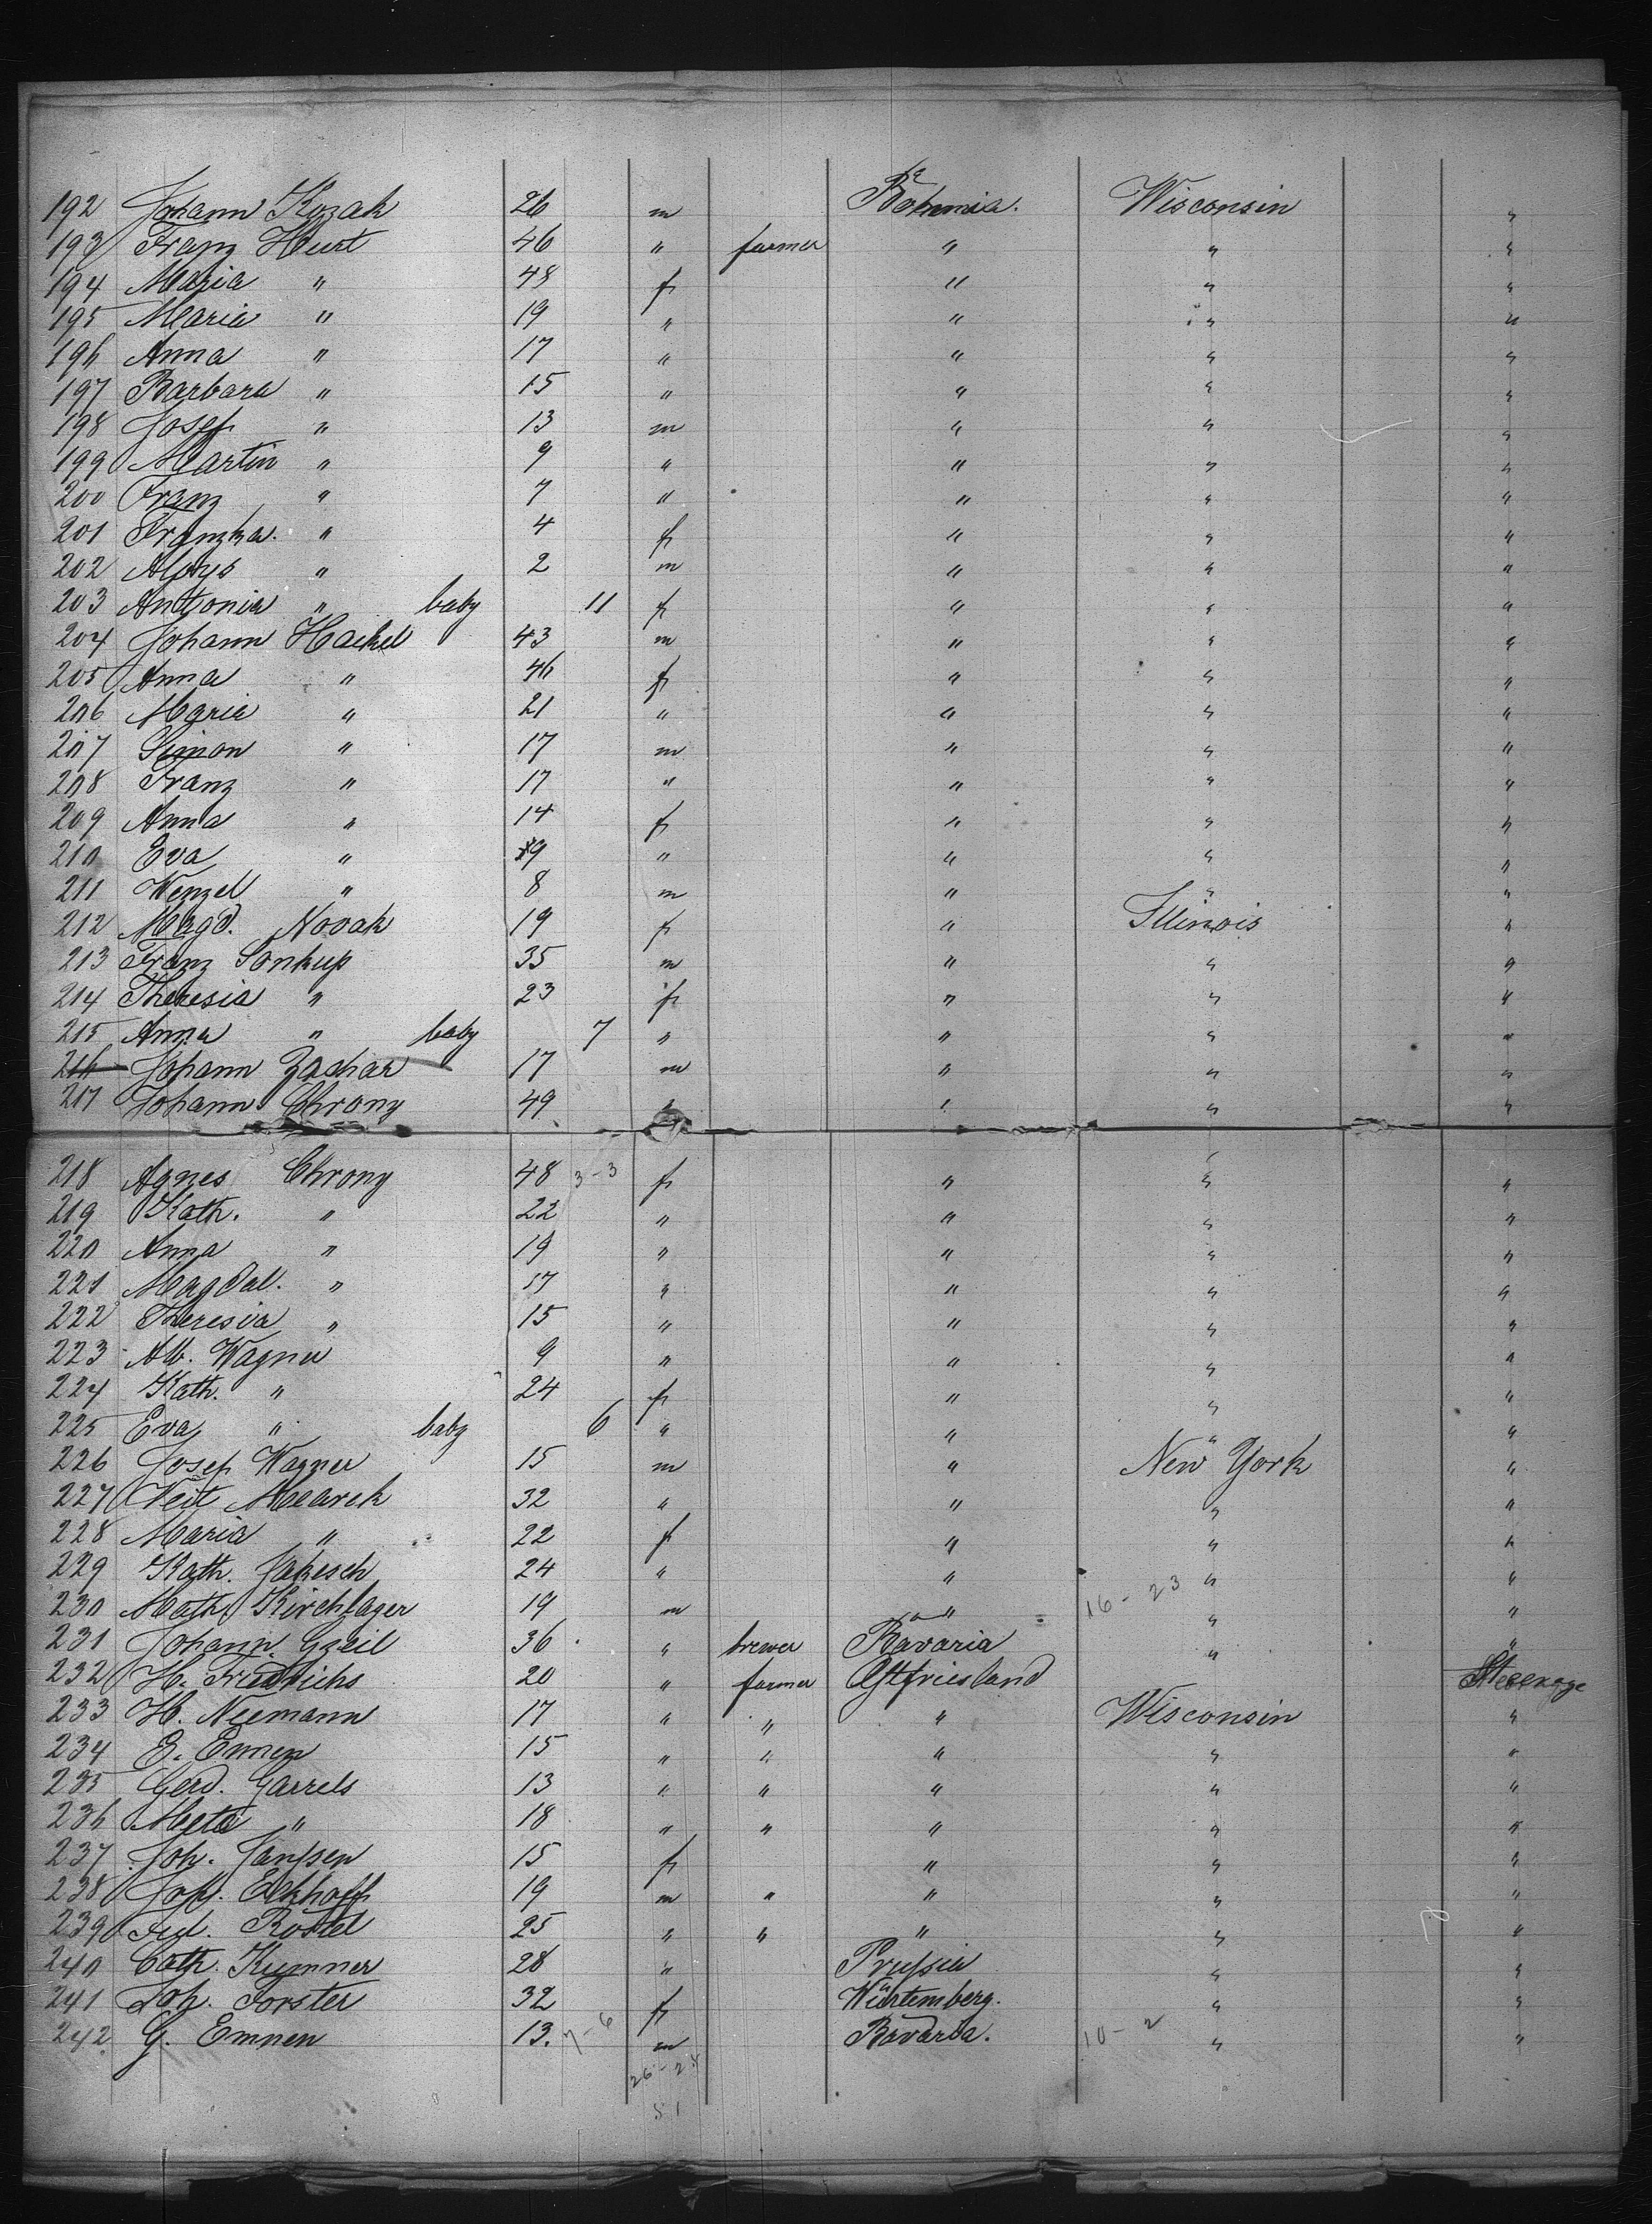 192 Johann Kozak 26 m Bohemia. Wisconsin "
193 Franz Hurt 46 " farmer " " "
194 Maria " 48 f " " "
195 Maria " 19 " " " "
196 Anna " 17 " " " "
197 Barbara " 15 " " " "
198 Josef " 13 m " " "
199 Martin " 9 " " " "
200 Franz " 7 " " " "
201 Franzka. " 4 f " " "
202 Aloys " 2 m " " "
203 Antonia " baby 11 f " " "
204 Johann Hackel 43 m " " "
205 Anna " 46 f " " "
206 Maria " 21 " " " "
207 Simon " 17 m " " "
208 Franz " 17 " " " "
209 Anna " 14 f " " "
210 Eva " 9 " " " "
211 Wenzel " 8 m " " "
212 Magd. Novak 19 f " Illinois "
213 Franz Sonkup 35 m " " "
214 Theresia " 23 f " " "
215 Anna " baby 7 " " " "
216 Johann Zachar 17 m " " "
217 Johann Chrony 49 " " " "
218 Agnes Chrony 48 3-3 f " " "
219 Kath. " 22 " " " "
220 Anna " 19 " " " "
221 Magdal. " 17 " " " "
222 Theresia " 15 " " " "
223 Alb. Wagner 9 " " " "
224 Kath. " 24 f " " "
225 Eva " baby 6 " " " "
226 Josef Wagner 15 m " New York "
227 Veit 32 " " " "
228 Maria " 22 f " " "
229 Kath. Jakesch 24 " " " "
230 Math. Kirchlager 19 m " 16-23 " "
231 Johann 36 " brewer Bavaria " "
232 H. Friedrichs 20 " farmer Ostfriesland Steerage
233 H. Niemann 17 " " " Wisconsin "
234 E. Emmen 15 " " " " "
235 Gerd. Garrels 13 " " " " "
236 Meta " 18 " " " " "
237 Joh. Janssen 15 f " " "
238 Joh. Eekhoff 19 m " " " "
239 Rostel 25 " " " " "
240 Cath. Kumner 28 " Prussia " "
241 Joh. Forster 32 f Würtemberg. " "
242 G. Emnen 13. 7-6 m Bavaria. 10-2 " "
26-25
51